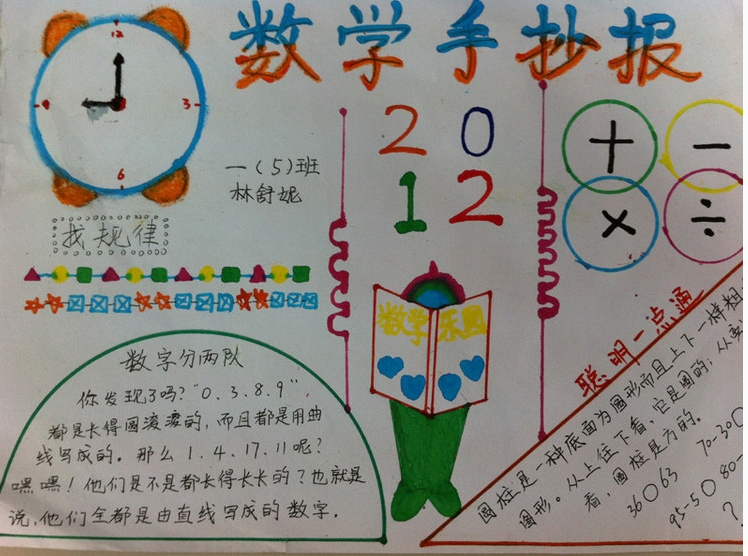 数学手抄报
12
3
6
9
2 0
1 2
+ −
× ÷
一(5)班
林舒妮
找规律
数学乐园
数字分两队
你发现了吗?"0.3.8.9",
都是长得圆滚滚的,而且都是用曲
线写成的。那么1.4.17.11呢?
嘿嘿!他们是不是都长得长长的?也就是
说,他们全都是由直线写成的数字.
聪明一点通
圆柱是一种底面为圆形而且上下一样粗
图形。从上往下看,它是圆的;从
看,圆柱是方的。
36○63 70-30○
95-5○80-
?